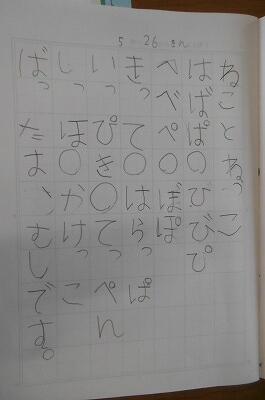 5 26 きん
ねことねっこ
はばぱ○ひびぴ
へべぺ○ぼぽ
きって○はらっぱ
いっぴき○てっぺん
しっぽ○かけっこ
ばったは、むしです。